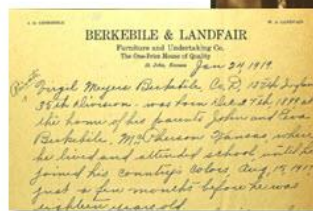 BERKEBILE & LANDFAIR
Furniture and Undertaking Co.
The One-Price House of Quality
St. John, Kansas Jan 24, 1919.
Virgil Meyers Berkebile, Co. D,
35th Division - was born Dec 27th, 1899 at
the home of his parents John and Eva
Berkebile, McPherson Kansas where
he lived and attended school, until he
joined his country's colors, Aug, 19, 1917
just a few months before he was
eighteen years old